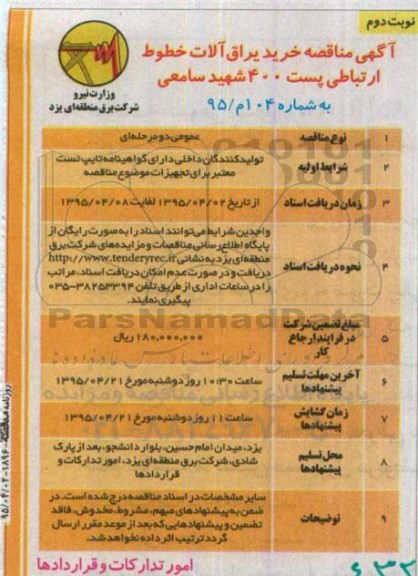 نوبت دوم
آگهی مناقصه خرید یراق آلات خطوط
ارتباطی پست ۴۰۰ شهید سامعی
به شماره ۱۰۴م/۹۵
وزارت نیرو
شرکت برق منطقه‌ای یزد
۱ نوع مناقصه عمومی دو مرحله‌ای
۲ شرایط اولیه تولیدکنندگان داخلی دارای گواهینامه تایپ تست
معتبر برای تجهیزات موضوع مناقصه
۳ زمان دریافت اسناد از تاریخ ۱۳۹۵/۰۴/۰۲ لغایت ۱۳۹۵/۰۴/۰۸
۴ نحوه دریافت اسناد
واجدین شرایط می‌توانند اسناد را به صورت رایگان از
پایگاه اطلاع رسانی مناقصات و مزایده‌های شرکت برق
منطقه‌ای یزد به نشانی http://www.tenderyrec.ir
دریافت و در صورت عدم امکان دریافت اسناد، مراتب
را در ساعات اداری از طریق تلفن ۳۸۲۵۳۳۹۴-۰۳۵
پیگیری نمایند.
۵ مبلغ تضمین شرکت
در فرایند ارجاع
کار
۱۸۰,۰۰۰,۰۰۰ ریال
۶ آخرین مهلت تسلیم
پیشنهادها
ساعت ۱۰:۳۰ روز دوشنبه مورخ ۱۳۹۵/۰۴/۲۱
۷ زمان گشایش
پیشنهادها
ساعت ۱۱ روز دوشنبه مورخ ۱۳۹۵/۰۴/۲۱
۸ محل تسلیم
پیشنهادها
یزد، میدان امام حسین، بلوار دانشجو، بعد از پارک
شادی، شرکت برق منطقه‌ای یزد، امور تدارکات و
قراردادها
۹ توضیحات
سایر مشخصات در اسناد مناقصه درج شده است. در
ضمن به پیشنهادهای مبهم، مشروط، مخدوش، فاقد
تضمین و پیشنهادهایی که بعد از موعد مقرر ارسال
گردد ترتیب اثر داده نخواهد شد.
امور تدارکات و قراردادها
ParsNamadData
روزنامه مناقصه مزایده - ۱۸۹۶ - ۹۵/۰۴/۰۲